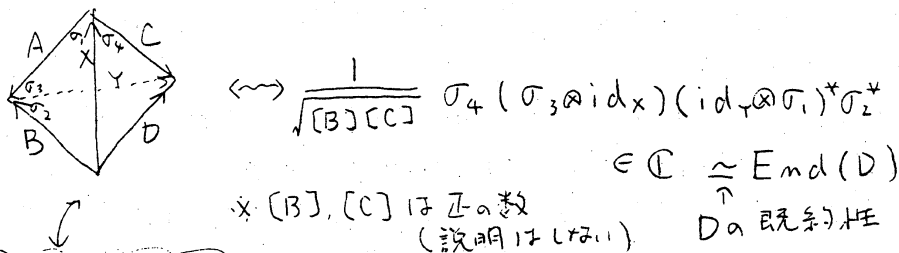 A σ₁ σ₄ C
X
σ₃ Y
σ₂
B D
⟷ 1/√([B][C]) σ₄(σ₃⊗id_X)(id_Y⊗σ₁)*σ₂*
∈ ℂ ≃ End(D)
↑
※ [B], [C] は正の数
(説明はしない)
Dの既約性